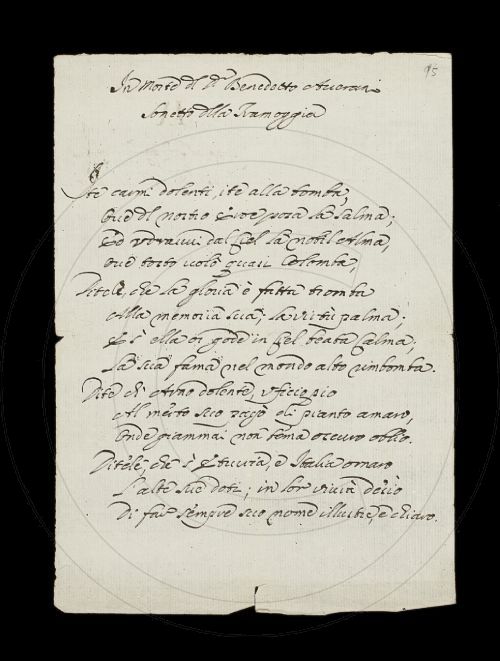 95
In Morte del Dr Benedetto Averani
Sonetto della Ramoggia
Ite carmi dolenti, ite alla tomba,
Ove del nostro Eroe posa la salma;
Ed udravvi dal Ciel la nobil Alma,
ove tosto volò quasi Colomba,
Ditele, che la gloria è fatta tromba
Alla memoria sua; la virtù palma;
E s'ella or gode in Ciel beata Calma;
La sua fama nel mondo alto rimbomba.
Dite ch' Arno dolente, uficio pio
Al merto suo pagò di pianto amaro,
Onde giammai non tema oscuro oblio.
Ditele, che s' Etruria, e Italia ornaro
L'alte sue doti; in lor vivrà desio
Di far sempre suo nome illustre, e chiaro.